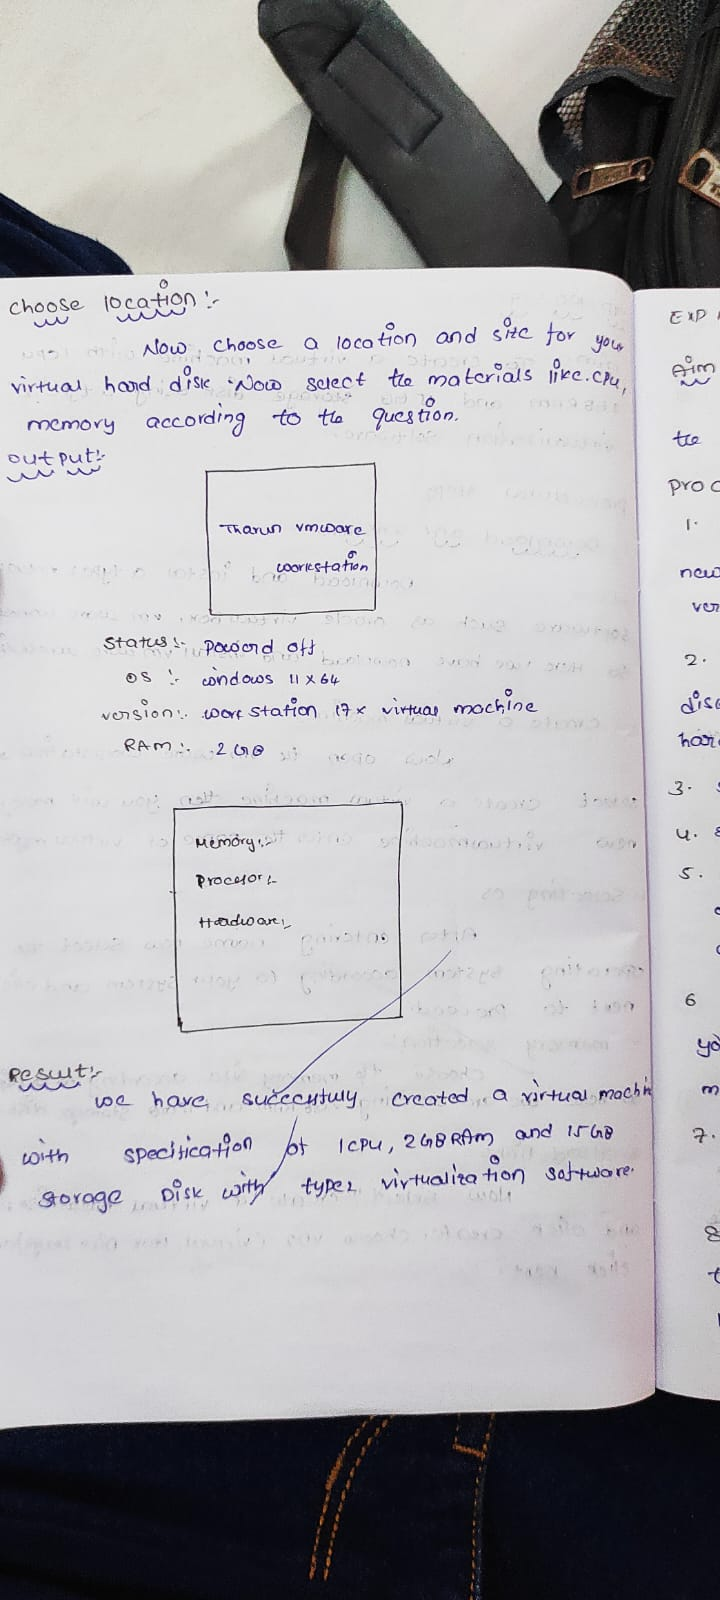 choose location :-
Now, choose a location and size for your
virtual hard disk. Now select the materials like.cpu,
memory according to the question.
output:-
Tharun vmware
workstation
Status :- Powerd off
OS :- windows 11 x 64
version :- work station 17x virtual machine
RAM :- 2 GB
Memory :-
Procesor :-
Hardware :-
Result:-
we have succesfuly created a virtual machin
with specification of 1CPU, 2GB RAM and 15GB
storage Disk with type2 virtualization software.
EXP
Aim
the
proc
1.
new
ver
2.
disc
har
3.
4.
5.
6
yo
m
7.
8
t